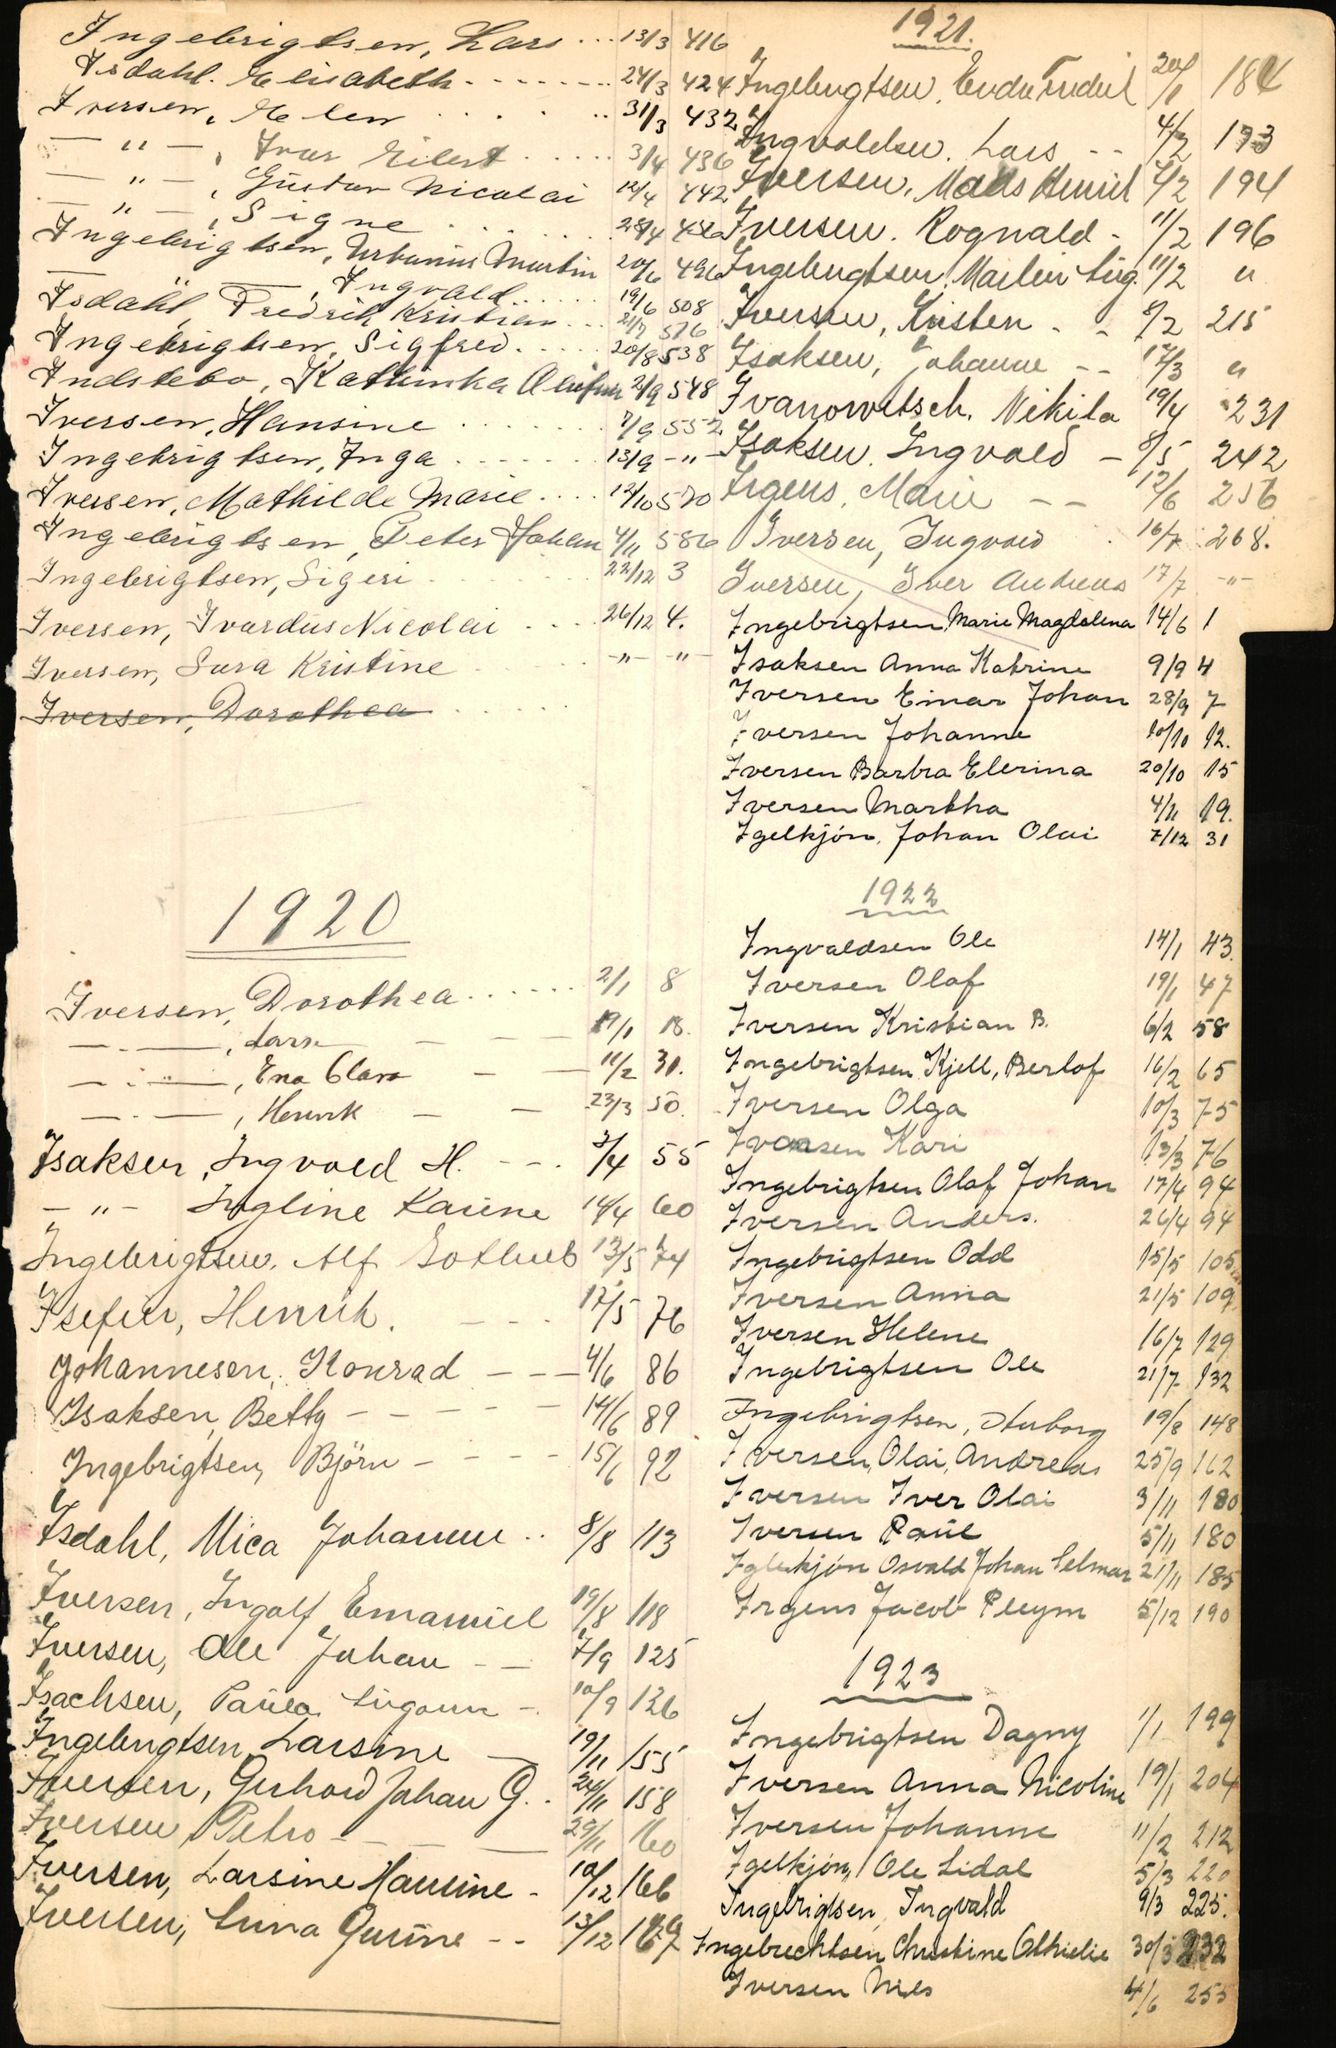 Ingebrigtsen, Lars ... 13/3 416
Isdahl. Elisabeth. ....... 24/3 424
Iversen, Helen ..... 31/3 432
— " —, Ivar Eilert ..... 3/4 436
— " —, Gustav Nicolai 12/4 442
— " —, Signe ....... 28/4
Ingebrigtsen, Urbanus Martin 20/6 496
— " —, Ingvald ..... 19/6 508
Isdahl, Fredrik Kristian ... 21/7 516
Ingebrigtsen, Sigfred. .... 20/8 538
Indstebo, Kathinka 2/9 548
Iversen, Hansine ...... 7/9 552
Ingebrigtsen, Inga ...... 13/9 -"-
Iversen, Mathilde Marie .... 12/10 570
Ingebrigtsen, Peter Johan 4/11 586
Ingebrigtsen, Sigeri ..... 22/12 3
Iversen, Ivardus Nicolai .... 26/12 4.
Iversen, Sara Kristine ..... -"- -"-
Iversen, Dorothea ....
1920
Iversen, Dorothea ...... 2/1 8
— . —, Lars — — — 19/1 18.
— . —, Ena Clara — — 11/2 31.
— . —, Henrik — — 23/3 50.
Isaksen, Ingvald H. - - - 3/4 55
- " - Ingline Karine 14/4 60
Ingebrigtsen. Alf Gotlieb 12/5 74
Henrik. — - - 12/5 76
Johannesen, Konrad - - - 4/6 86
Isaksen, Betty - - - - - 14/6 89
Ingebrigtsen, Björn - - - - 15/6 92
Isdahl, Mica Johanne .. 8/8 113
Iversen, Ingolf Emanuel 19/8 118
Iversen, Ole Johan - - 7/9 125
Isachsen, Paula - 10/9 126
Ingebrigtsen, Larsine — 19/11 155
Iversen, Gerhard Johan G. . 24/11 158
Iversen, Petra - — — 29/11 160
Iversen, Larsine Hansine - 10/12 166
Iversen, Anna Gurine - - 13/12
1921.
Ingebrigtsen, 20/1 184
Ingvaldsen. Lars - - 4/2 193
Iversen, Mads Henrik 7/2 194
Iversen. Rognald - 11/2 196
Ingebrigtsen, Martin 11/2 "
Iversen, Kristen - - 8/2 215
Isaksen, Johanne - - 12/3 "
Ivanowitsch, Nikita 19/4 231
Isaksen. Ingvald - 8/5 242
Irgens, Marie — — 12/6 256
Iversen, Ingvald . 16/7 268.
Iversen, Iver Andreas 17/7 -"-
Ingebrigtsen, Marie Magdalena 14/6 1
Isaksen Anna Katrine 9/9 4
Iversen Einar Johan 28/9 7
Iversen Johanne 10/10 12.
Iversen Barbra Elerina 20/10 15
Iversen Martha 4/11 19.
Igelkjön, Johan Olai 7/12 31
1922
Ingvaldsen Ole 14/1 43.
Iversen Olaf 19/1 47
Iversen Kristian B. 6/2 58
Ingebrigtsen Kjell, Berlof 16/2 65
Iversen Olga 10/3 75
Kari 13/3 76
Ingebrigtsen Olaf Johan 17/4 94
Iversen Anders. 26/4 94
Ingebrigtsen Odd 15/5 105
Iversen Anna 21/5 109
Iversen Helene 16/7 129
Ingebrigtsen Ole 21/7 132
Ingebrigtsen, Auborg 19/8 148
Iversen, Olai, Andreas 25/9 162
Iversen Iver Olai 3/11 180
Iversen Paul 5/11 180
Igelkjön Osvald Johan Selmar 21/11 185
Irgens Jacob Pleym 5/12 190
1923
Ingebrigtsen Dagny 1/1 199
Iversen Anna Nicoline 19/1 204
Iversen Johanne 11/2 212
Igelkjön, Ole Lidal 5/3 220
Ingebrigtsen, Ingvald 9/3 225.
Ingebrechtsen Christine Othielie 30/3 232
Iversen Nils 4/6 255